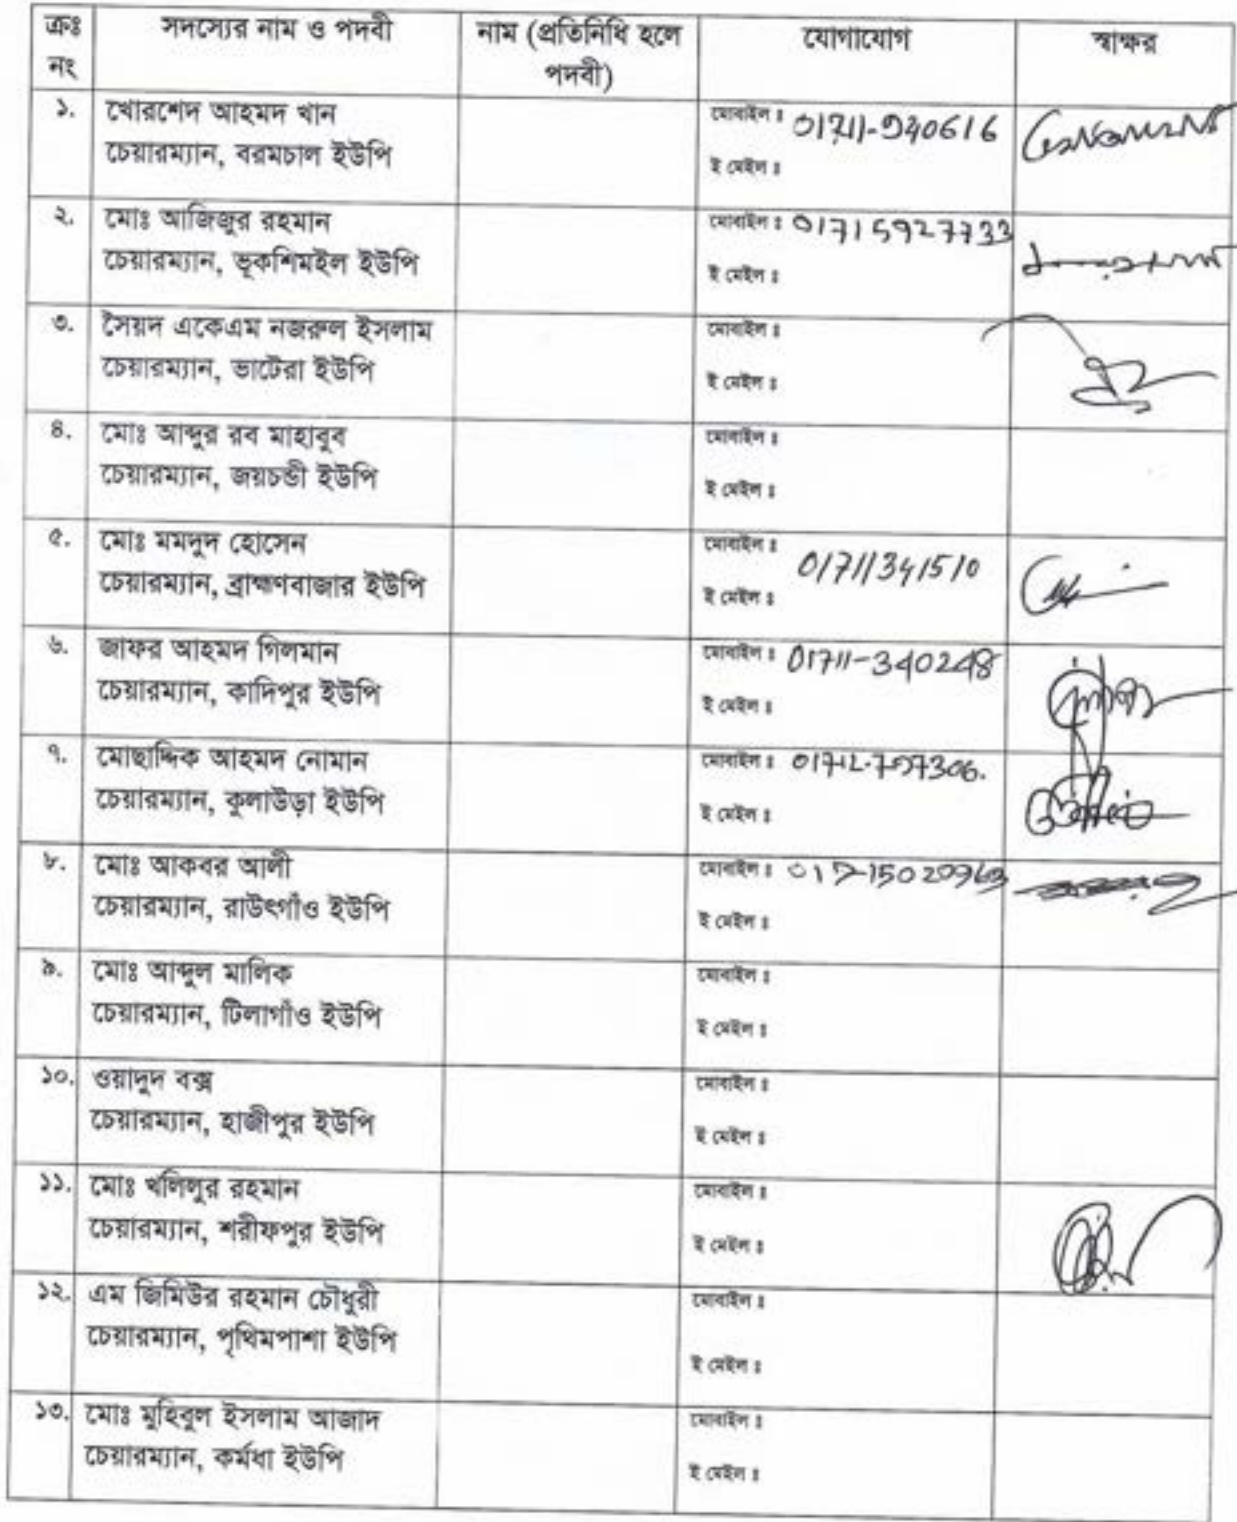 ক্রঃ নং
সদস্যের নাম ও পদবী
নাম (প্রতিনিধি হলে পদবী)
যোগাযোগ
স্বাক্ষর
১.
খোরশেদ আহমদ খান
চেয়ারম্যান, বরমচাল ইউপি
মোবাইল ঃ 01711-940616
ই মেইল ঃ
২.
মোঃ আজিজুর রহমান
চেয়ারম্যান, ভূকশিমইল ইউপি
মোবাইল ঃ 01715927733
ই মেইল ঃ
৩.
সৈয়দ একেএম নজরুল ইসলাম
চেয়ারম্যান, ভাটেরা ইউপি
মোবাইল ঃ
ই মেইল ঃ
৪.
মোঃ আব্দুর রব মাহাবুব
চেয়ারম্যান, জয়চন্ডী ইউপি
মোবাইল ঃ
ই মেইল ঃ
৫.
মোঃ মমদুদ হোসেন
চেয়ারম্যান, ব্রাহ্মণবাজার ইউপি
মোবাইল ঃ
01711341510
ই মেইল ঃ
৬.
জাফর আহমদ গিলমান
চেয়ারম্যান, কাদিপুর ইউপি
মোবাইল ঃ 01711-340248
ই মেইল ঃ
৭.
মোছাদ্দিক আহমদ নোমান
চেয়ারম্যান, কুলাউড়া ইউপি
মোবাইল ঃ
ই মেইল ঃ
৮.
মোঃ আকবর আলী
চেয়ারম্যান, রাউৎগাঁও ইউপি
মোবাইল ঃ
ই মেইল ঃ
৯.
মোঃ আব্দুল মালিক
চেয়ারম্যান, টিলাগাঁও ইউপি
মোবাইল ঃ
ই মেইল ঃ
১০.
ওয়াদুদ বক্স
চেয়ারম্যান, হাজীপুর ইউপি
মোবাইল ঃ
ই মেইল ঃ
১১.
মোঃ খলিলুর রহমান
চেয়ারম্যান, শরীফপুর ইউপি
মোবাইল ঃ
ই মেইল ঃ
১২.
এম জিমিউর রহমান চৌধুরী
চেয়ারম্যান, পৃথিমপাশা ইউপি
মোবাইল ঃ
ই মেইল ঃ
১৩.
মোঃ মুহিবুল ইসলাম আজাদ
চেয়ারম্যান, কর্মধা ইউপি
মোবাইল ঃ
ই মেইল ঃ